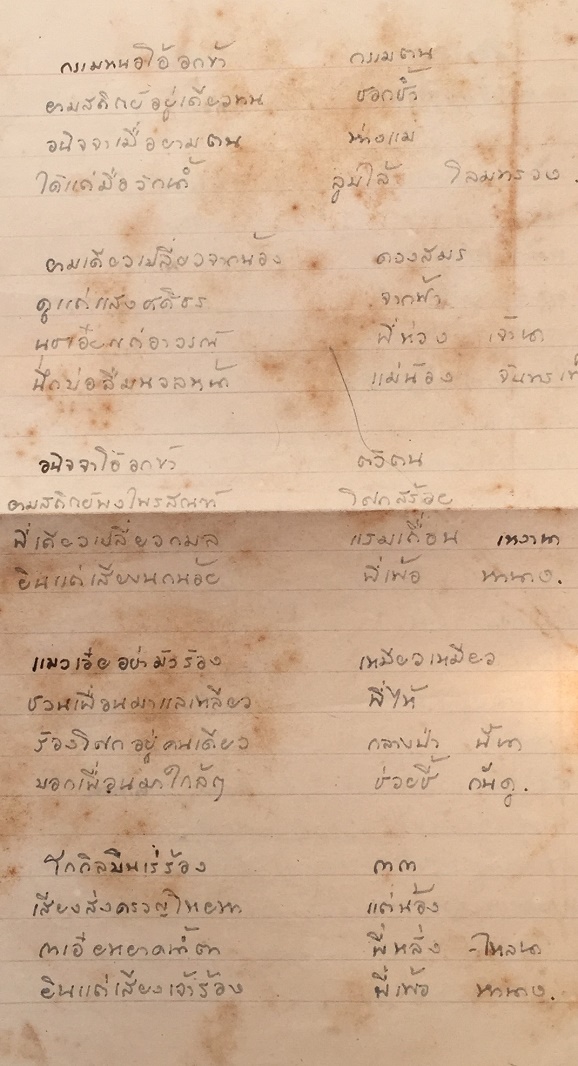 กรรมหนอไอ้อกข้า กรรมตน
ยามสถิตย์อยู่เดียวทน ชอกช้ำ
อนิจจาเมื่อยามตน ห่างแม่
ได้แต่มือวักน้ำ ลูบไล้ โลมทรวง.
ยามเดียวเปลี่ยวจากน้อง ดวงสมร
ดูแต่แสงศศิธร จากฟ้า
พี่ห่วง เจ้านา
นึกบ่ลืมนวลหน้า แม่น้อง จันทร
อนิจจาไอ้อกข้า ตัวตน
ยามสถิตย์พงไพรสณฑ์ โศกสร้อย
พี่เดียวเปลี่ยวกมล แรมเถื่อน เหงานา
ยินแต่เสียงนกน้อย พี่เพ้อ หานาง.
แมวเอ๋ยอย่ามัวร้อง เหมียวเหมียว
ชวนเพื่อนมาแลเหลียว พี่ไห้
ร้องโศกอยู่คนเดียว กลางป่า นี้นา
บอกเพื่อนมาใกล้ๆ ช่วยชี้ กันดู.
โกกิลบินเร่ร้อง กากา
เสียงส่งครวญไหยหา แต่น้อง
กาเอ๋ยหยาดน้ำตา พี่หลั่ง ไหลนา
ยินแต่เสียงเจ้าร้อง พี่เพ้อ หานาง.